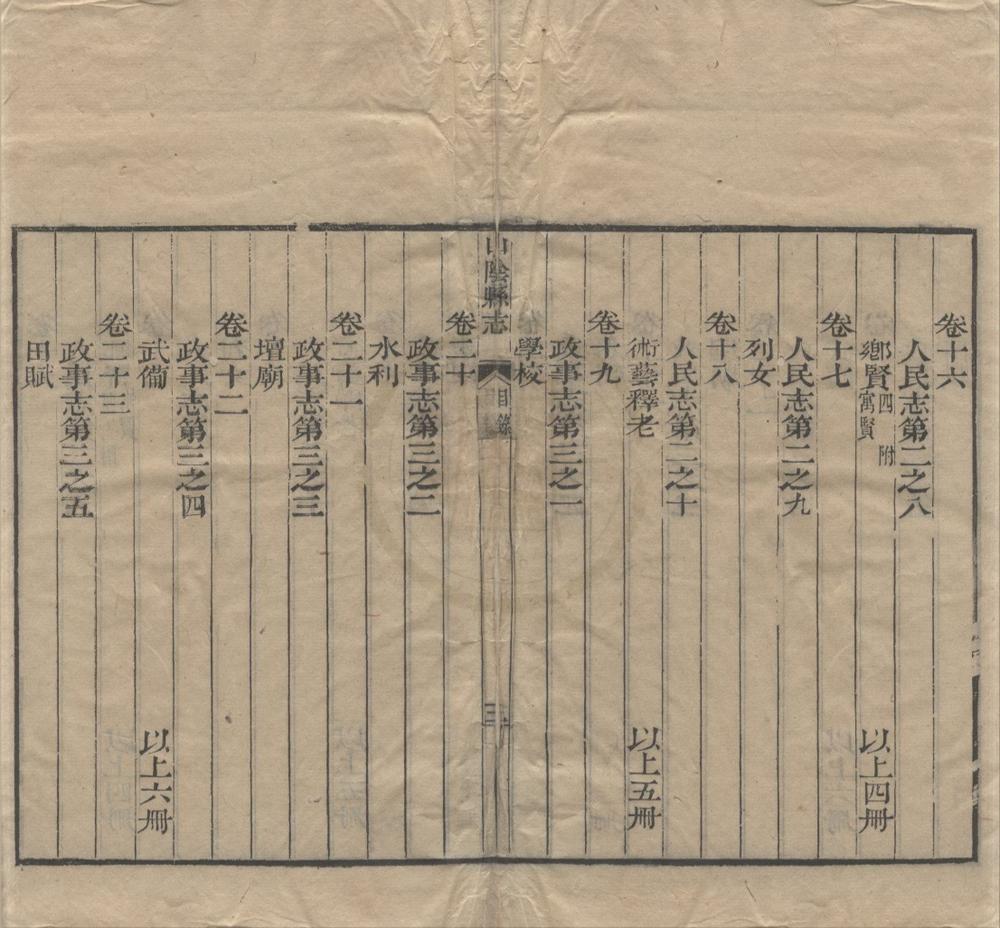 卷十六
人民志第二之八
鄉賢四附寓賢
以上四冊
卷十七
人民志第二之九
列女
卷十八
人民志第二之十
術藝釋老
以上五冊
卷十九
政事志第三之一
學校
山陰縣志
目錄
三
卷二十
政事志第三之二
水利
卷二十一
政事志第三之三
壇廟
卷二十二
政事志第三之四
武備
以上六冊
卷二十三
政事志第三之五
田賦